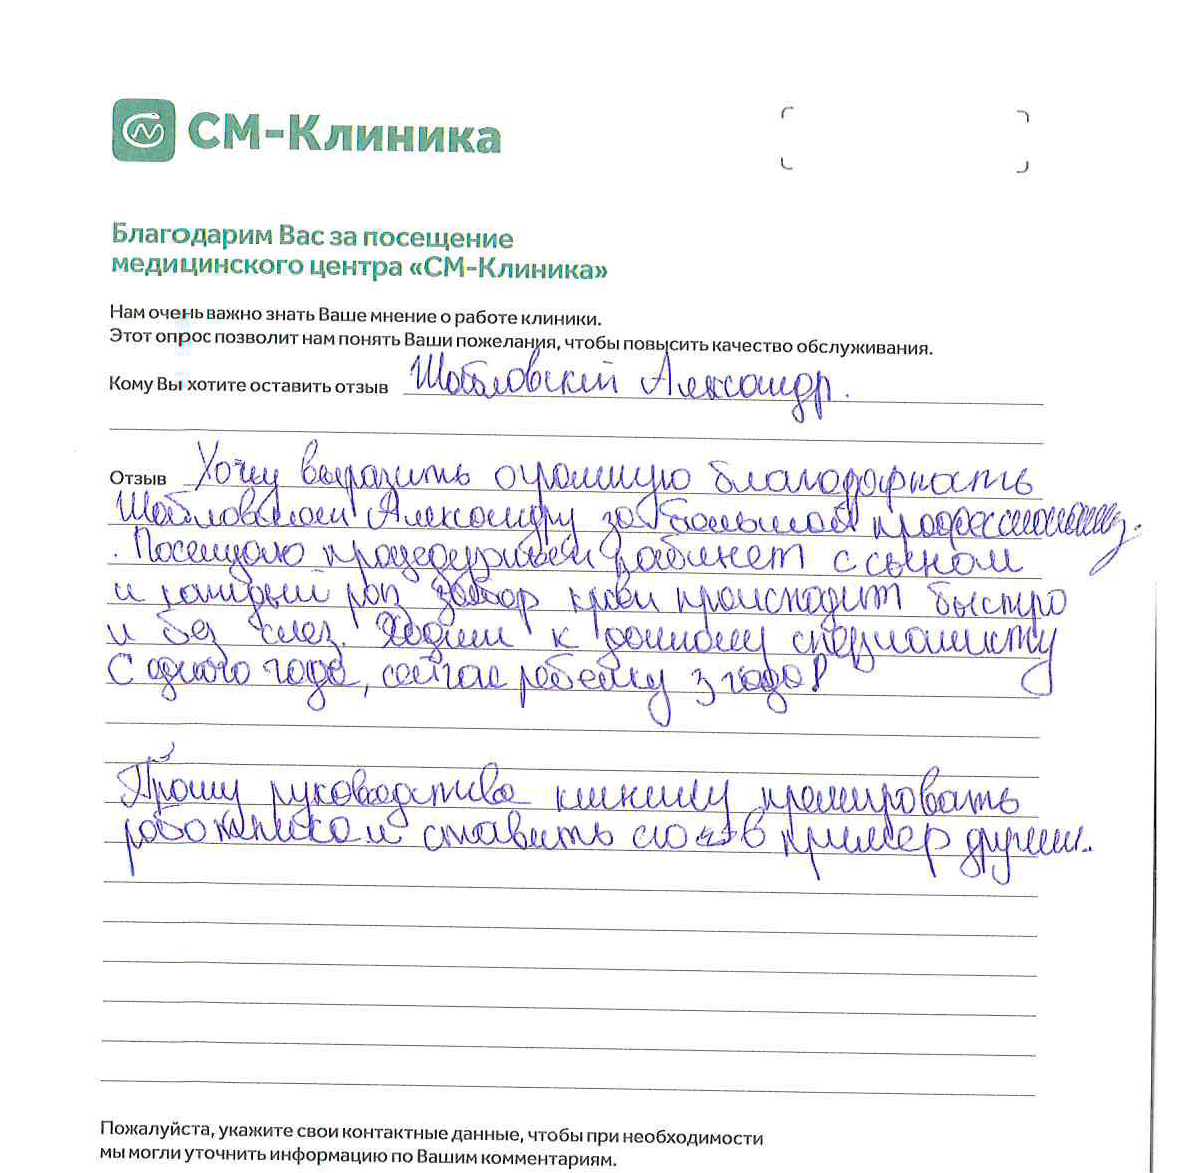 СМ-Клиника
Благодарим Вас за посещение
медицинского центра «СМ-Клиника»
Нам очень важно знать Ваше мнение о работе клиники.
Этот опрос позволит нам понять Ваши пожелания, чтобы повысить качество обслуживания.
Кому Вы хотите оставить отзыв Шабловский Александр.
Отзыв Хочу выразить огромную благодарность
Александру за большой профессионализм.
Посещаю процедурный кабинет с сыном
и каждый раз забор крови происходит быстро
и без слез. Ходим к данному специалисту
С одного года, сейчас ребенку 3 года!
Прошу руководства клиники премировать
работника и ставить его в пример другим.
Пожалуйста, укажите свои контактные данные, чтобы при необходимости
мы могли уточнить информацию по Вашим комментариям.